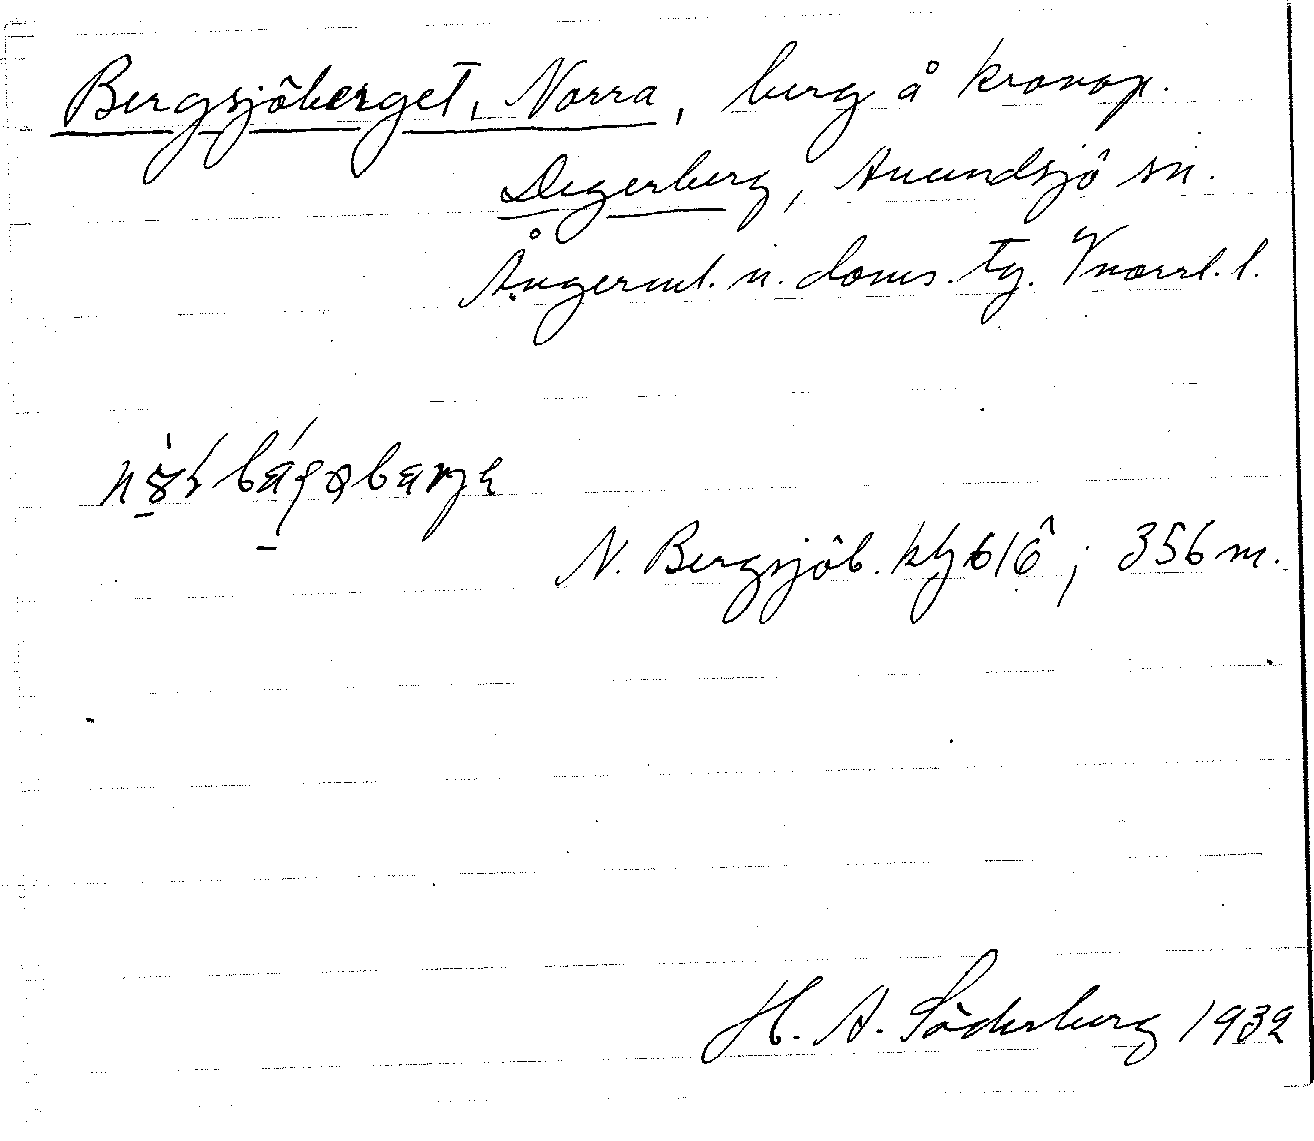 Bergsjöberget, Norra, berg å kronop.
Degerberg, Anundsjö sn.
Ångerml. n. doms. tg. Vnorrl. l.
N. Bergsjöb. ; 356 m.
H. A. Söderberg 1932